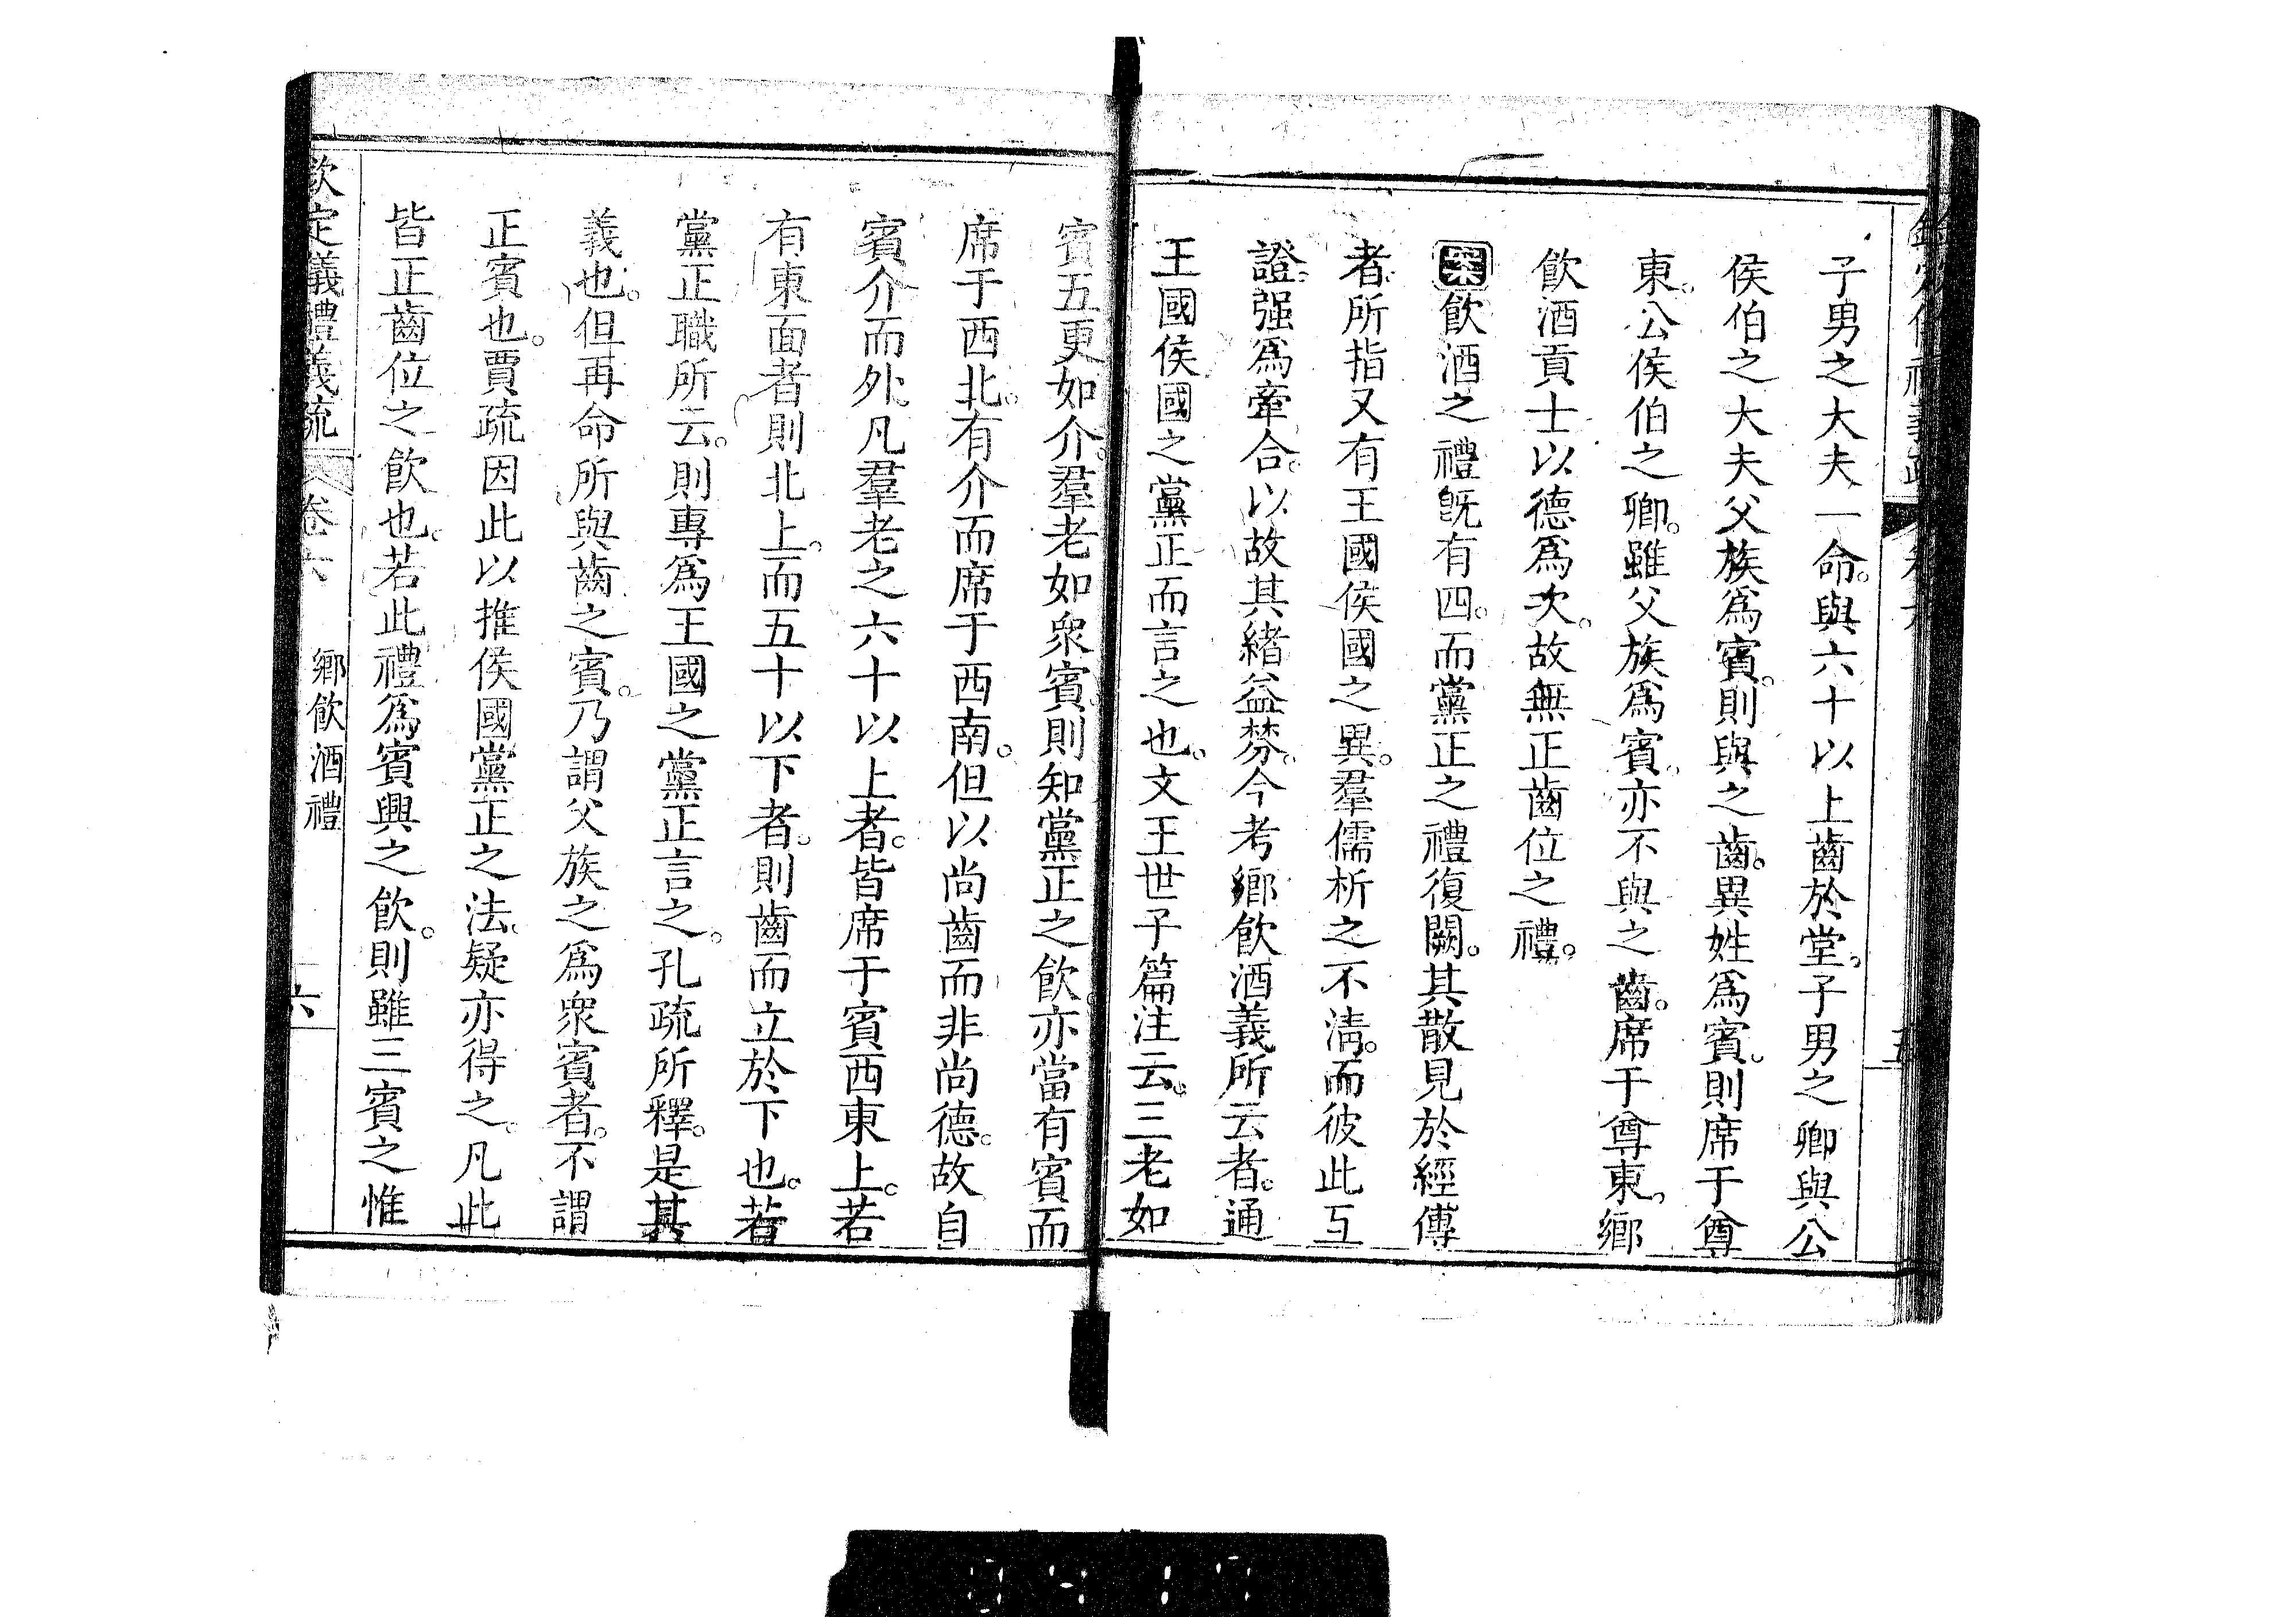 子男之大夫一命。與六十以上齒於堂。子男之卿與公
侯伯之大夫父族爲賓。則與之齒。異姓爲賓。則席于尊
東。公侯伯之卿。雖父族爲賓。亦不與之齒。席于尊東。鄉
飲酒貢士以德爲次。故無正齒位之禮。
案飲酒之禮旣有四。而黨正之禮復闕。其散見於經傳
者。所指又有王國侯國之異。羣儒析之不淸。而彼此互
證。强爲牽合。以故其緖益棼。今考鄉飲酒義所云者。通
王國侯國之黨正而言之也。文王世子篇注云。三老如
賓五更如介。羣老如衆賓。則知黨正之飲。亦當有賓而
席于西北。有介而席于西南。但以尚齒而非尚德。故自
賓介而外。凡羣老之六十以上者。皆席于賓西東上。若
有東面者則北上。而五十以下者。則齒而立於下也。若
黨正職所云。則專爲王國之黨正言之。孔疏所釋。是其
義也。但再命所與齒之賓。乃謂父族之爲衆賓者。不謂
正賓也。賈疏因此以推侯國黨正之法。疑亦得之。凡此
皆正齒位之飲也。若此禮爲賓興之飲。則雖三賓之惟
欽定儀禮義疏 卷六 鄉飲酒禮 六